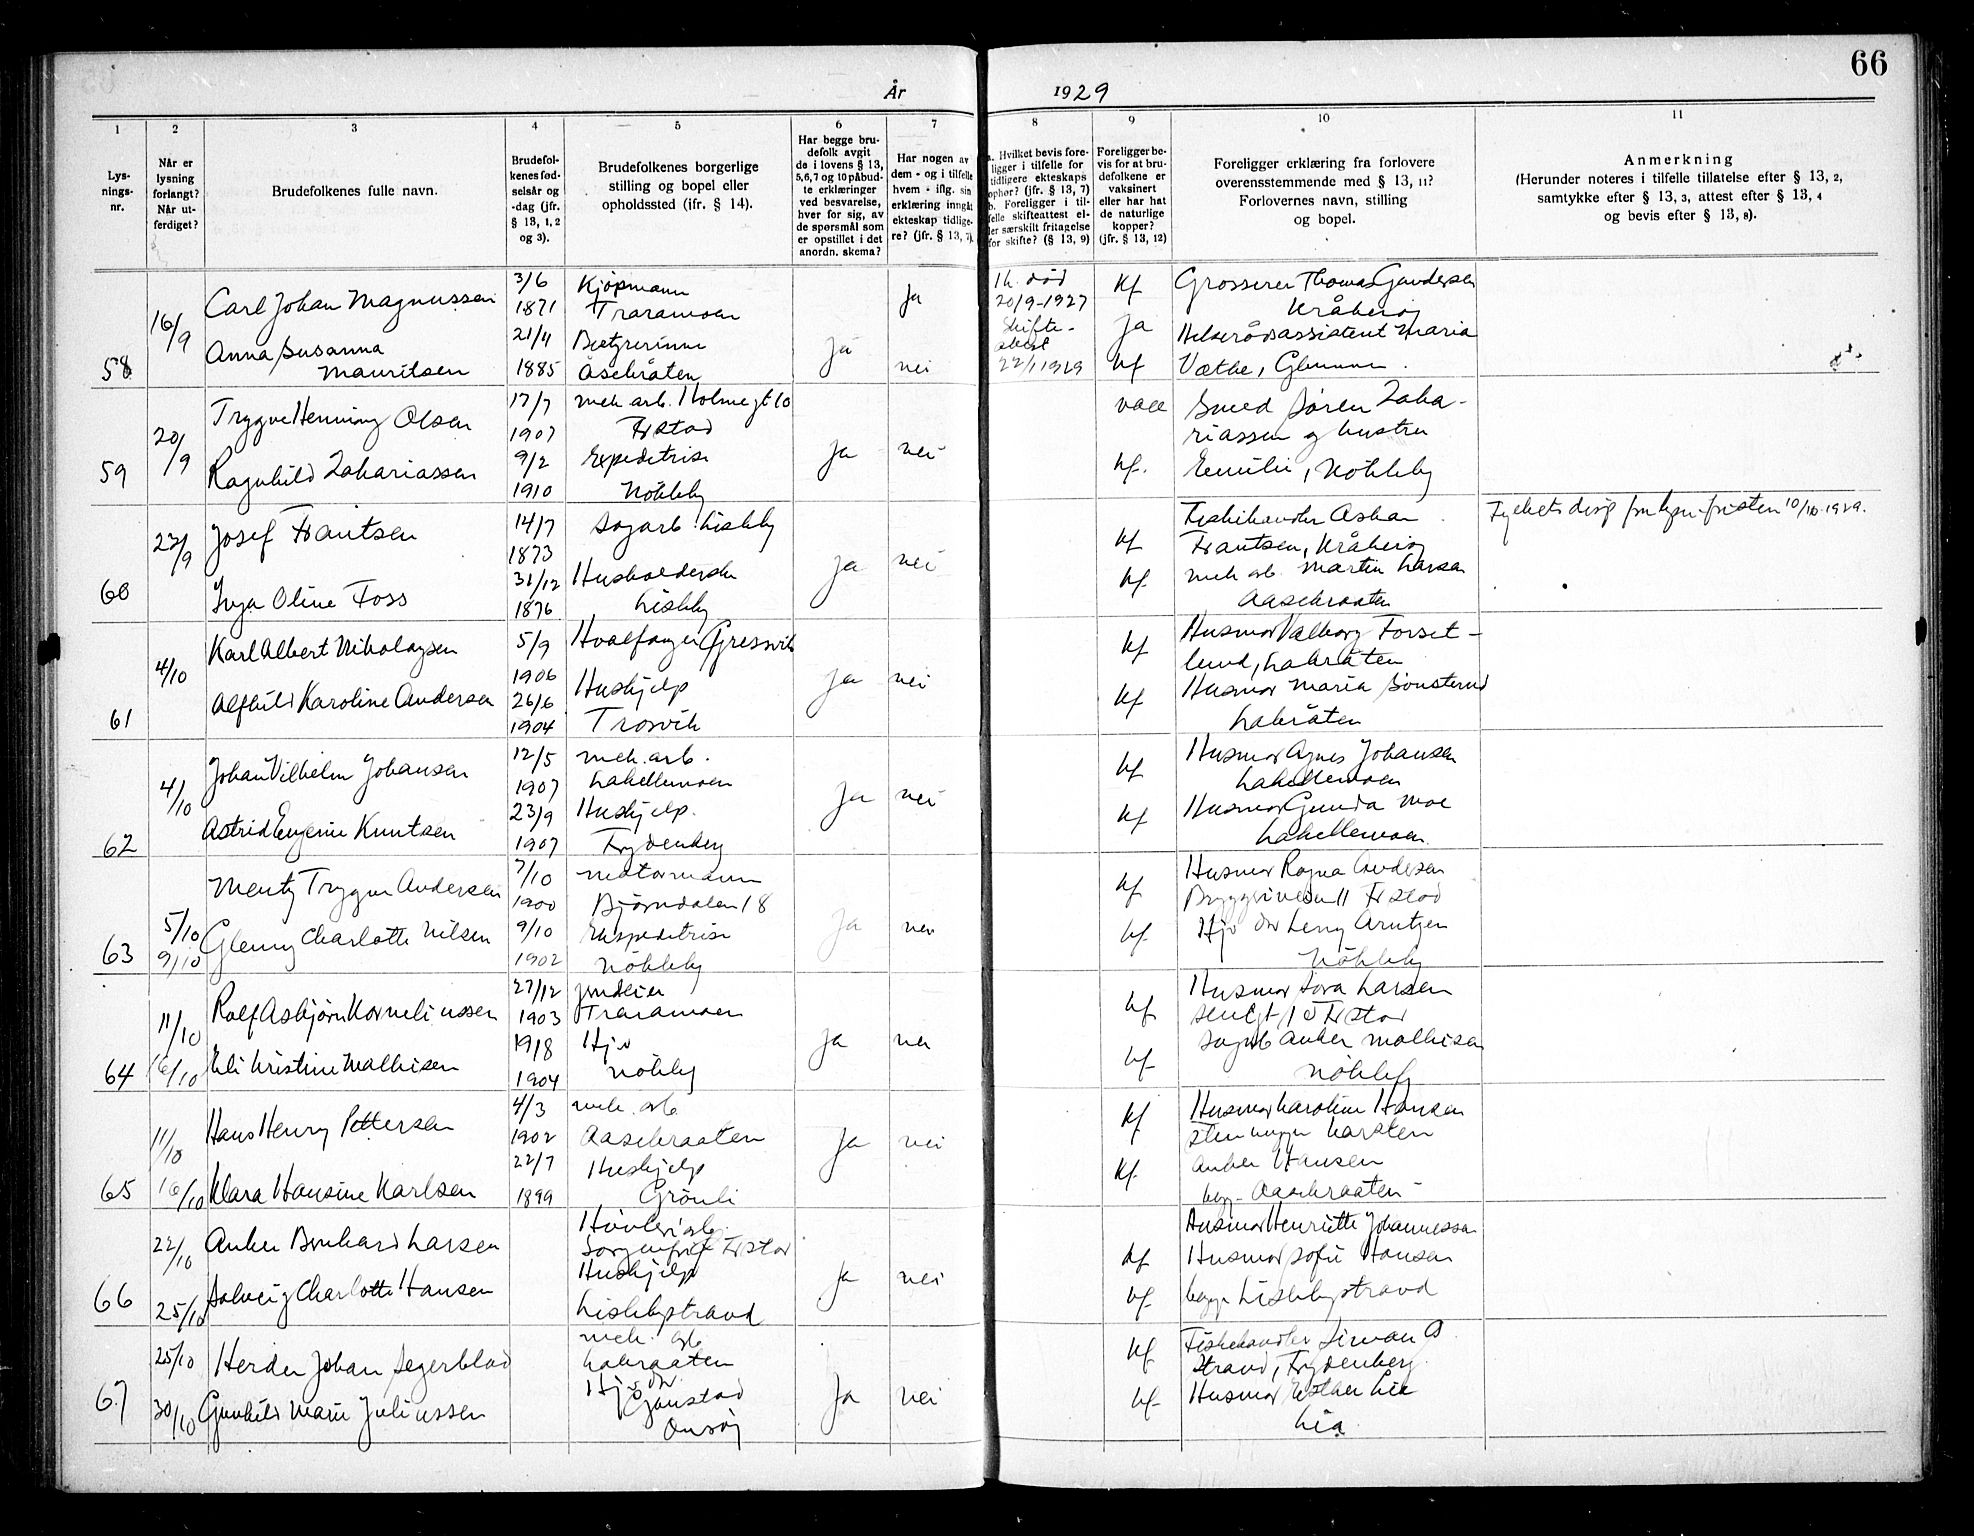 66
År 1929
1 2 3 4 5 6 7 8 9 10 11
Lys-
nings-
nr.
Når er
lysning
forlangt?
Når ut-
ferdiget?
Brudefolkenes fulle navn.
Brudefol-
kenes fød-
selsår og
-dag (jfr.
§ 13, 1, 2
og 3).
Brudefolkenes borgerlige
stilling og bopel eller
opholdssted (ifr. § 14).
Har begge bru-
defolk avgit
de i lovens § 13,
5,6,7 og 10 påbud-
te erklæringer
ved besvarelse,
hver for sig, av
de spørsmål som
er opstillet i det
anordn. skema?
Har nogen av
dem - og i tilfelle
hvem - iflg. sin
erklæring inngåt
ekteskap tidlige-
re? (jfr. § 13, 7).
a. Hvilket bevis fore-
ligger i tilfelle for
tidligere ekteskaps
ophør? (jfr. § 13, 7)
b. Foreligger i til-
felle skifteattest el-
ler særskilt fritagelse
for skifte? (§ 13, 9)
Foreligger be-
vis for at bru-
defolkene er
vaksinert
eller har hat
de naturlige
kopper?
(jfr. § 13, 12)
Foreligger erklæring fra forlovere
overensstemmende med § 13, 11?
Forlovernes navn, stilling
og bopel.
Anmerkning
(Herunder noteres i tilfelle tillatelse efter § 13, 2,
samtykke efter § 13, 3, attest efter § 13, 4
og bevis efter § 13, 8).
58
16/9
Carl Johan Magnussen
Anna Susanna
Mauritsen
3/6
1871
21/11
1885
Kjøpmann
Traramoen
Bestyrerinne
Åsebråten
ja
Ja
nei
Ih. död
20/9-1927
Skifte-
attest
22/1 1929
kf
ja
kf
Grosserer Thomas Gundersen
Kråkerøy
Helserådsassistent Maria
Væthe, Glemmen.
59
20/9
Trygve Henning Olsen
Ragnhild Zakariassen
17/7
1907
9/2
1910
mek arb. Holmegt 10
Frstad
Expeditrise
Nökleby
ja
nei
vacc
kf.
Smed Søren Zaka-
riassen og hustru
Emilie, Nökleby
60
23/9
Josef Frantsen
Inga Oline Foss
14/7
1873
31/12
1876
Sagarb. Lisleby
Husholderske
Lisleby
ja
nei
kf
kf.
Fiskehandler Oskar
Frantsen, Kråkerøy
mek arb. Martin Larsen
Aasebraaten
10/10-1929.
61
4/10
Karl Albert Nikolaysen
Alfhild Karoline Andersen
5/9
1906
26/6
1904
Hvalfanger Gressvik
Hushjelp
Trosvik
ja
nei
kf
kf
Husmor Valborg Forset-
lund, Labråten
Husmor Maria Sönsterud
Labråten
62
4/10
Johan Vilhelm Johansen
Astrid Eugenie Knutsen
12/5
1907
23/9
1907
mek. arb.
Lahellemoen
Hushjelp.
Frydenberg
ja
nei
kf
kf
Husmor Agnes Johansen
Lahellemoen
Husmor Gunda Moe
Lahellemoen
63
5/10
9/10
Mentz Trygve Andersen
Glenny Charlotte Nilsen
7/10
1900
9/10
1902
motormann
Björndalen 18
Ekspeditrise
Nökleby
ja
nei
kf
kf.
Husmor Ragna Andersen
Bryggeriveien 11 Frstad
Hjv dr Lenny Arntzen
Nökleby
64
11/10
16/10
Rolf Asbjørn Korneliussen
Eli Kristine Mathisen
27/12
1903
19/8
1904
Traramoen
Hjv
Nökleby
ja
nei
kf
kf
Husmor Tora Larsen
Frstad
Sagarb Anker Mathisen
Nökleby
65
11/10
16/10
Hans Henry Pettersen
Klara Hansine Karlsen
4/3
1902
22/7
1899
mek. arb
Aasebraaten
Hushjelp
Grönli
ja
nei
kf
kf.
Husmor Karoline Hansen
Stenhugger Karsten
Anker Hansen
beg. Aasebraaten -
66
22/10
25/10
Anker Bernhard Larsen
Solveig Charlotte Hansen
Hövleriarb.
Sorgenfri Frstad
Hushjelp
Lislebystrand
ja
nei
kf
kf
Husmor Henriette Johannessen
Husmor Sofie Hansen
begge Lislebystrand
67
25/10
30/10
Herder Johan Segerblad
Gunhild Marie Juliussen
mek. arb
Labraaten
Hjv dr
Onsøy
ja
nei
kf
kf
Fiskehandler Simon A
Strand, Frydenberg.
Husmor Esther Lie
Lia